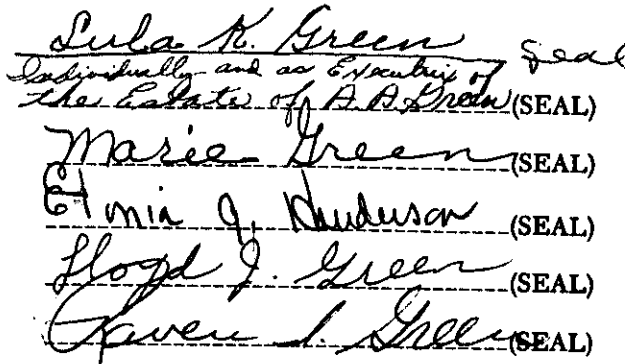 Lula K. Green Seal
Individually and as Executrix of
the Estate of A. A. Green (SEAL)
Marie Green (SEAL)
J. Henderson (SEAL)
Floyd J. Green (SEAL)
Green (SEAL)